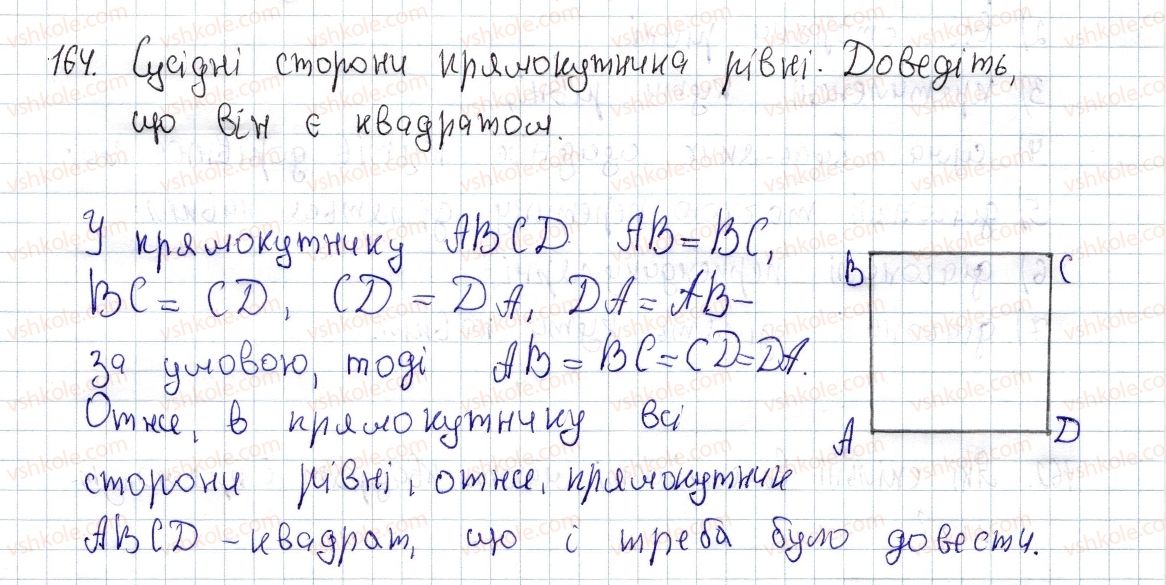 164. Сусідні сторони прямокутника рівні. Доведіть,
що він є квадратом.
У прямокутнику ABCD AB = BC,
BC = CD, CD = DA, DA = AB –
за умовою, тоді AB = BC = CD = DA.
Отже, в прямокутнику всі
сторони рівні, отже, прямокутник
ABCD – квадрат, що і треба було довести.
B C
A D
vshkole.com